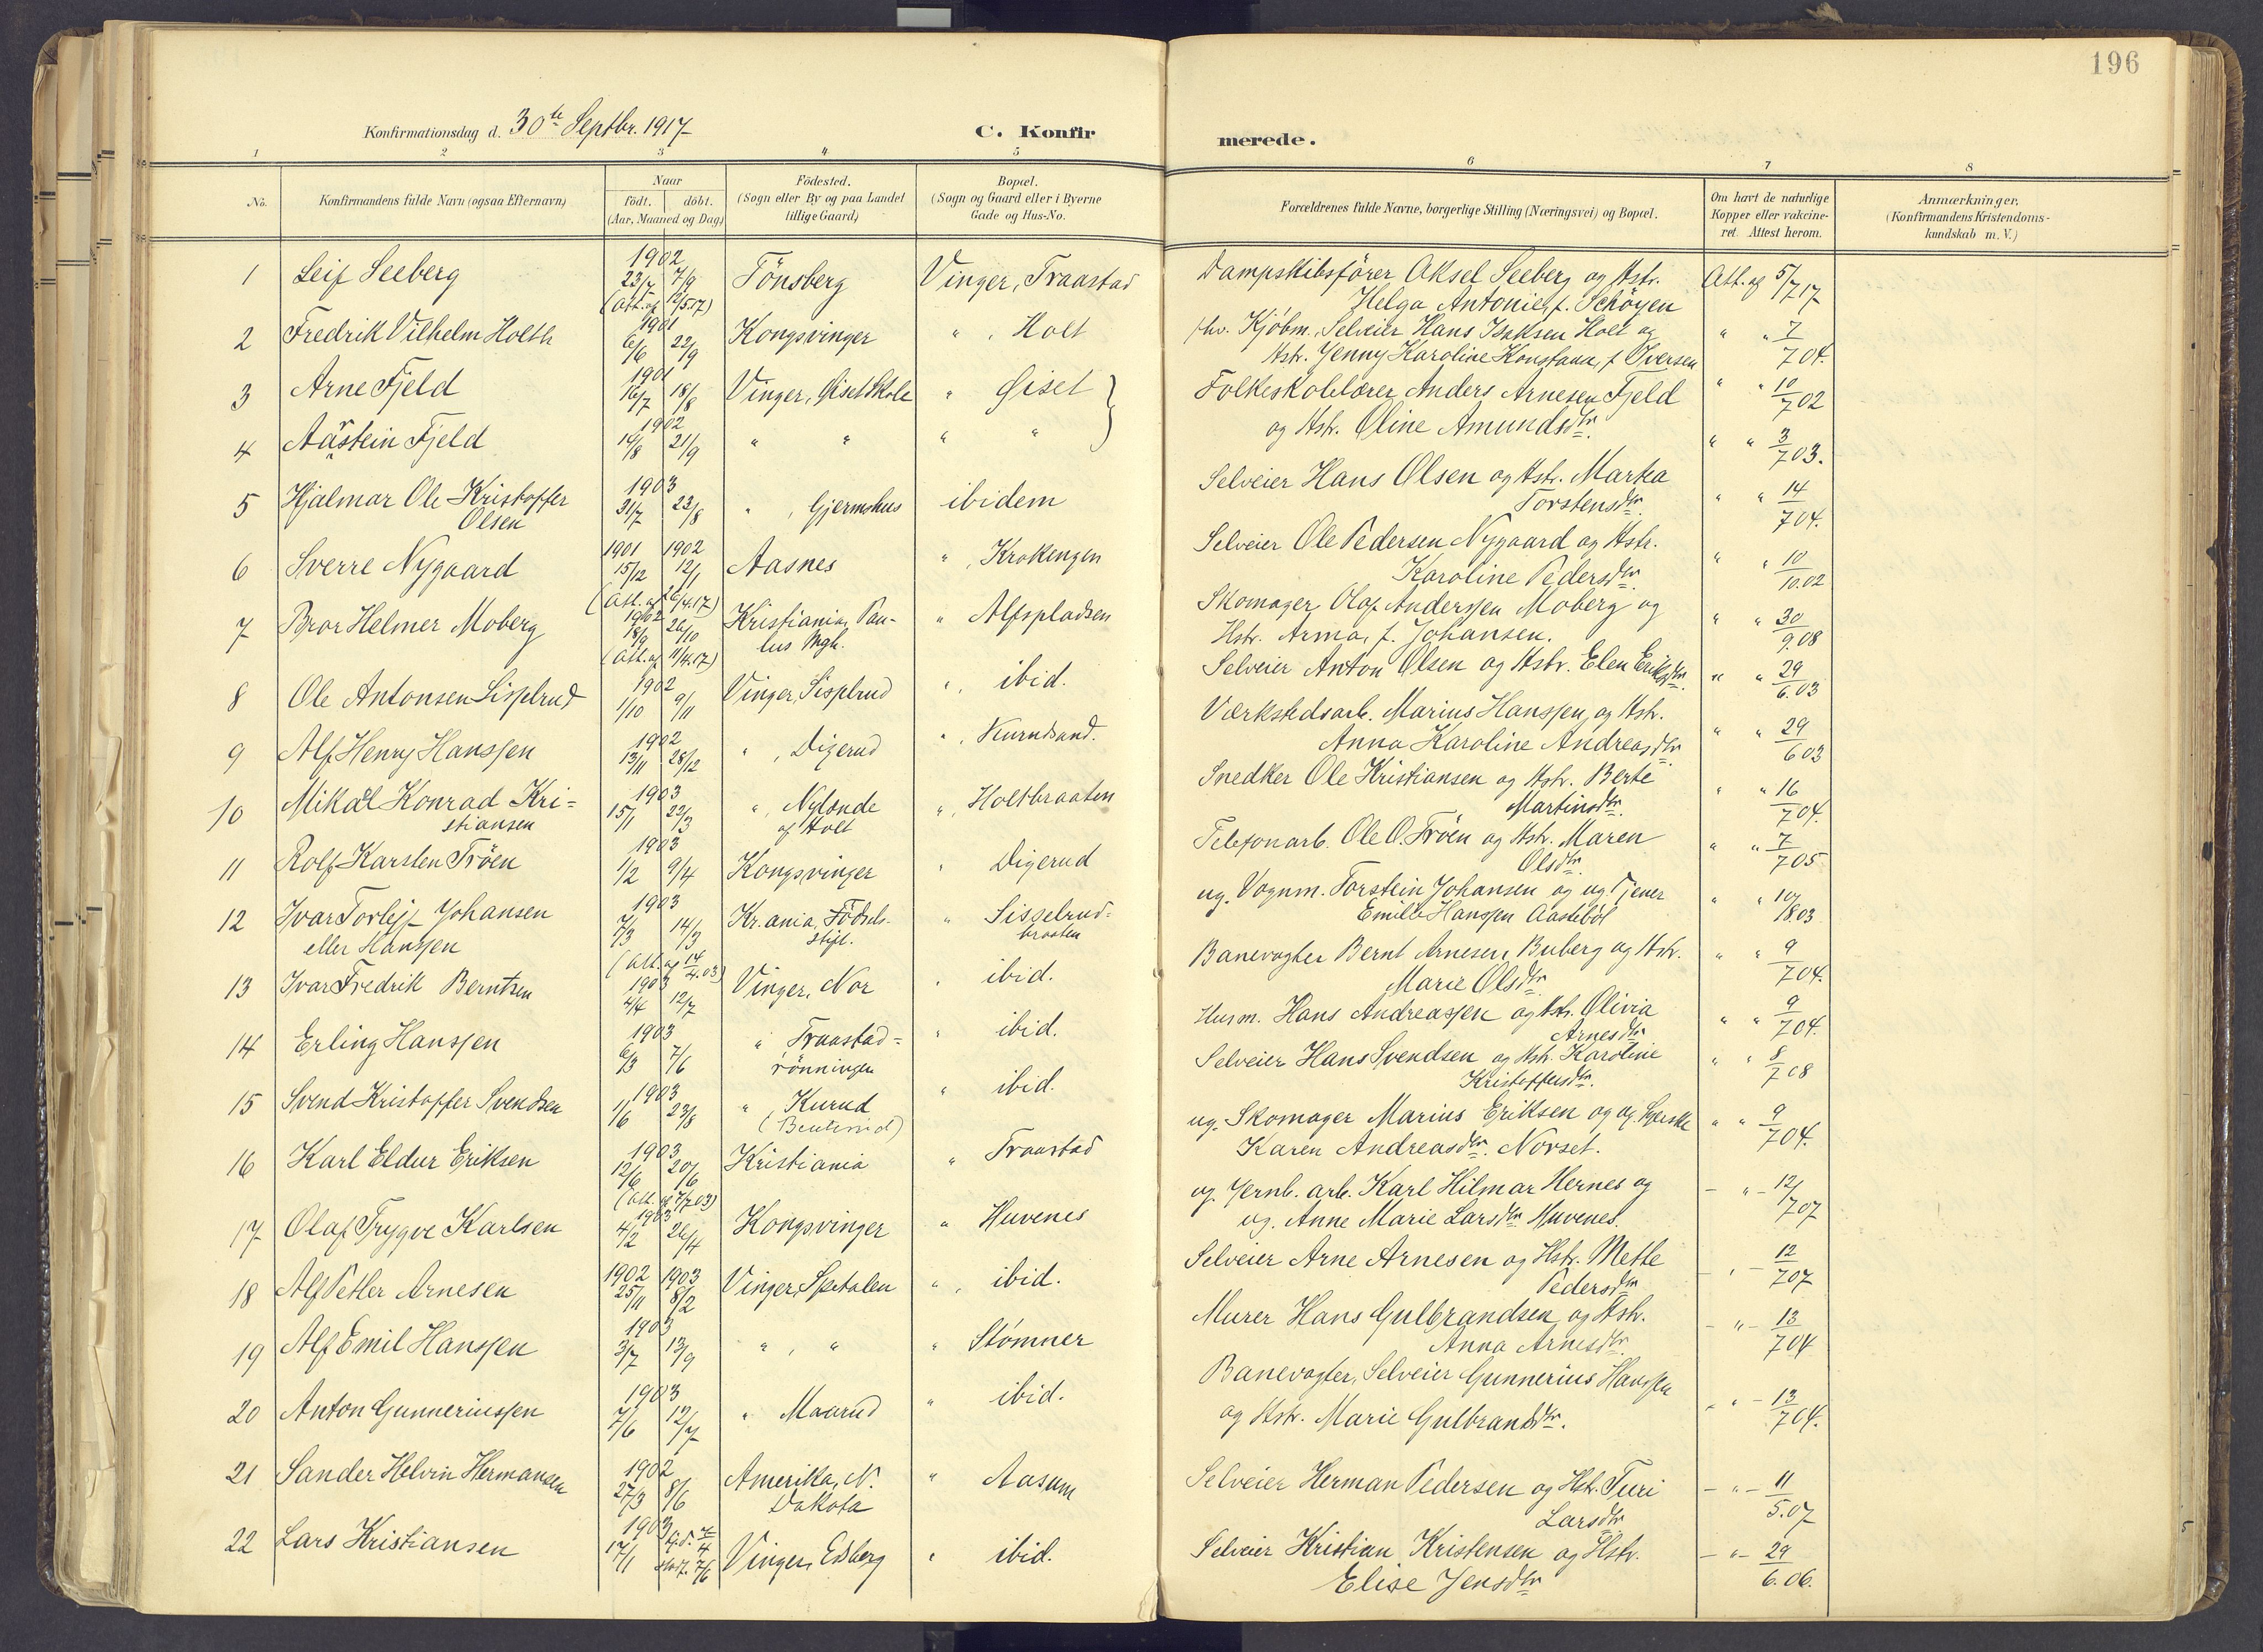 196
Konfirmationsdag d. 30te Septbr. 1917
C. Konfir
merede.
1 2 3 4 5 6 7 8
No.
Konfirmandens fulde Navn (ogsaa Efternavn)
Naar
födt. döbt.
(Aar, Maaned og Dag)
Födested.
(Sogn eller By og paa Landet
tillige Gaard)
Bopæl.
(Sogn og Gaard eller i Byerne
Gade og Hus-No.
Forældrenes fulde Navne, borgerlige Stilling (Næringsvei) og Bopæl.
Om havt de naturlige
Kopper eller vakcine-
ret. Attest herom.
Anmærkninger.
(Konfirmandens Kristendoms-
kundskab m. V.)
1 Leif Seeberg 1902 23/7 7/9 Tönsberg Vinger, Traastad Dampskibsförer Aksel Seeberg og Hstr. Att. af 5/7 17
(Att. af 12/5.17) Helga Antonie, f. Schöyen
2 Fredrik Vilhelm Holth 1901 6/6 22/9 Kongsvinger " , Holt fhv. Kjöbm., Selveier Hans Isaksen Holt og " " 7/7 04.
Hstr. Jenny Karoline Konstanse, f. Iversen
3 Arne Fjeld 1901 16/7 18/8 Vinger, Öiset Skole " Öiset } Folkeskolelærer Anders Arnesen Fjeld " " 10/7 02
4 Aastein Fjeld 1902 14/8 21/9 " " " " og Hstr. Oline Amundsdtr. " " 3/7 03.
5 Hjalmar Ole Kristoffer 1903 31/7 23/8 " , Gjermshus ibidem Selveier Hans Olsen og Hstr. Marta " " 14/7 04.
Olsen Torstensdtr.
6 Sverre Nygaard 1901 15/12 1902 12/1 Aasnes " , Krokengen Selveier Ole Pedersen Nygaard og Hstr. " " 10/10.02
(Att. af 26/4.17) Karoline Pedersdtr.
7 Bror Helmer Moberg 1902 18/9 26/10 Kristiania, Pau- " Alfspladsen Skomager Olaf Anderssen Moberg og " " 30/9.08
(Att. af 11/4.17) lus Mgh. Hstr. Arma, f. Johansen.
8 Ole Antonsen Sisselrud 1902 1/10 9/11 Vinger, Sisselrud " , ibid. Selveier Anton Olsen og Hstr. Elen Eriksdtr. " " 29/6.03
9 Alf Henry Hanssen 1902 13/11 28/12 " , Digerud " , Kurudsand. Værkstedsarb. Marius Hanssen, og Hstr. " " 29/6 03
Anna Karoline Andreasdtr.
10 Mikal Konrad Kri= 1903 15/1 22/3 " , Nylænde " , Holtbraaten Snedker Ole Kristiansen og Hstr. Berte " " 16/7 04.
stiansen af Holt Martinsdtr.
11 Rolf Karsten Tröen 1903 1/2 9/4 Kongsvinger " Digerud Telefonarb. Ole O. Tröen og Hstr. Maren " " 7/7 05
Olsdtr.
12 Ivar Torlejf Johansen 1903 7/3 14/3 Kr.ania, Födsels- " Sisselrud= ug. Vognm. Torstein Johansen og ug. Tjener " " 10/8 03
eller Hanssen stift. braaten Emilie Hanssen Aasteböl
(Att. af 14/4.03)
13 Ivar Fredrik Berntsen 1903 4/4 12/7 Vinger, Nor " ibid. Banevogter Bernt Arnesen Buberg og Hstr. " " 9/7 04.
Marie Olsdtr.
14 Erling Hanssen 1903 6/3 7/6 " Traastad= " ibid. Husm. Hans Andreassen og Hstr. Olivia " " 9/7 04.
rönningen Arnesdtr.
15 Svend Kristoffer Svendsen 1903 1/6 23/8 " Kurud " ibid. Selveier Hans Svendsen og Hstr. Karoline " " 8/7 08
Kristoffersdtr.
16 Karl Eldur Eriksen 1903 12/6 20/6 Kristiania " Traastad ug. Skomager Marius Eriksen og ug. Syerske " " 9/7 04.
(Att. af 7/7 03) Karen Andreasdtr. Norset.
17 Olaf Trygve Karlsen 1903 4/2 26/4 Kongsvinger " Huvenes ug. Jernb. arb. Karl Hilmar Hernes og - " - 12/7 07
ug. Anne Marie Larsdtr. Huvenes.
18 Alf Petter Arnesen 1902 25/11 1903 8/2 Vinger, Spetalen " , ibid. Selveier Arne Arnesen og Hstr. Mette - " - 12/7 07
Pedersdtr
19 Alf Emil Hanssen 1903 3/7 13/9 " , " " Stömner Murer Hans Gulbrandsen og Hstr. - " - 13/7 04
Anna Arnesdtr.
20 Anton Gunneriussen 1903 7/6 12/7 " Maarud " ibid. Banevogter, Selveier Gunnerius Hanssen - " - 13/7 04.
og Hstr. Marie Gulbrandsdtr.
21 Sander Helvin Hermansen 1902 27/3 8/6 Amerika, N. " Aasum Selveier Herman Pedersen og Hstr. Turi - " - 11/5.07
Dakota Larsdtr
22 Lars Kristiansen 1903 17/1 Vinger, Edsberg " ibid. Selveier Kristian Kristensen og Hstr. - " - 29/6.06.
Elise Jensdtr